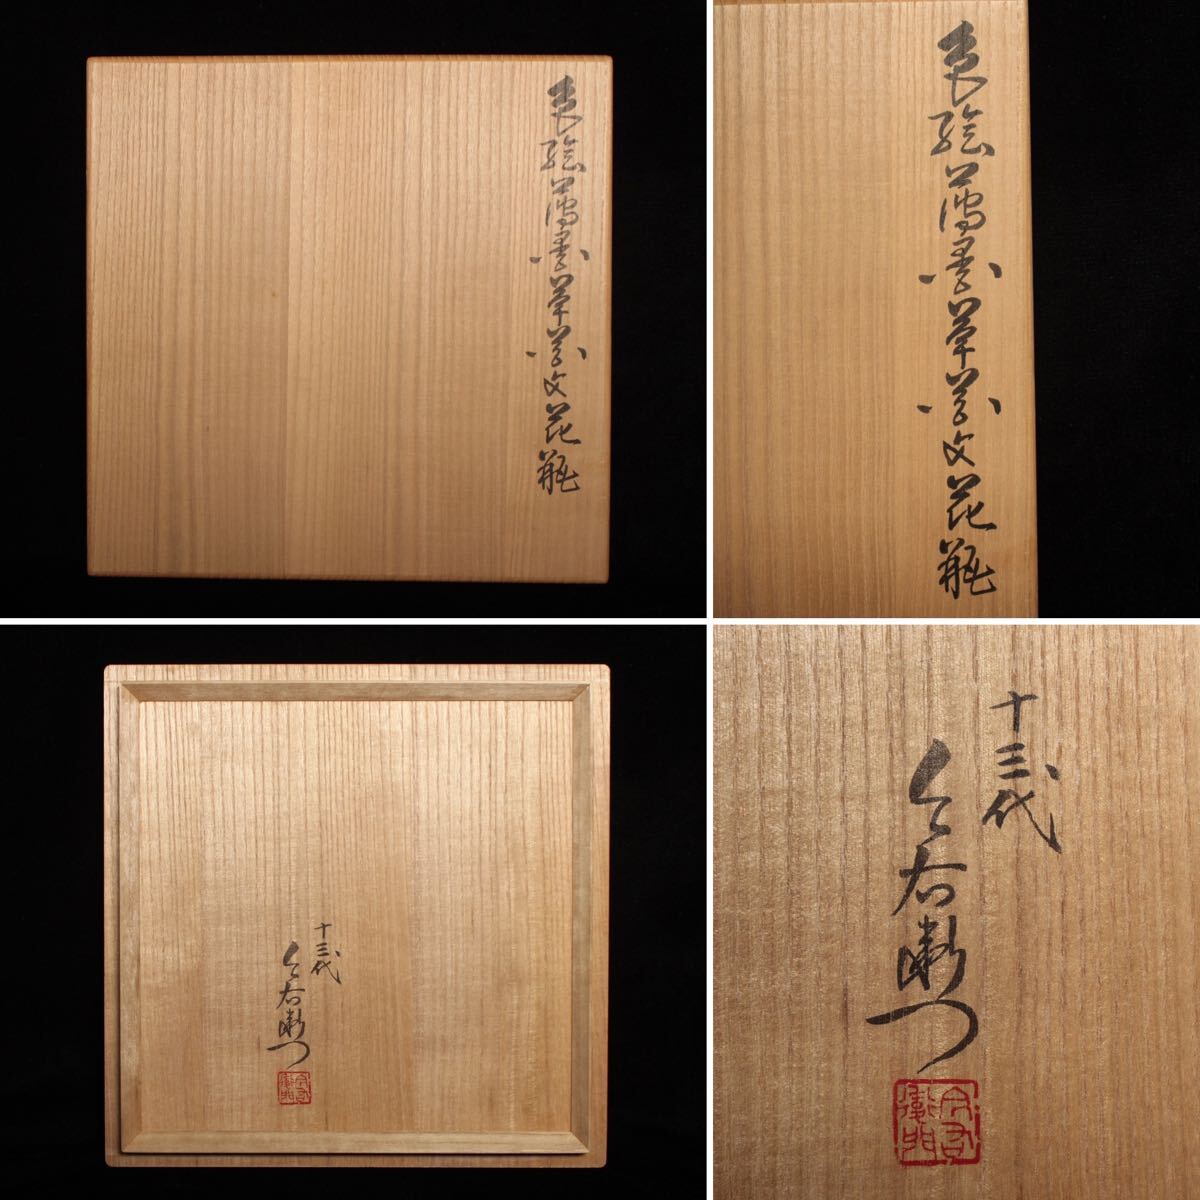 色絵薄墨草花文花瓶
色絵薄墨草花文花瓶
十三代
今右衛門
今右衛門
十三代
今右衛門
今右衛門